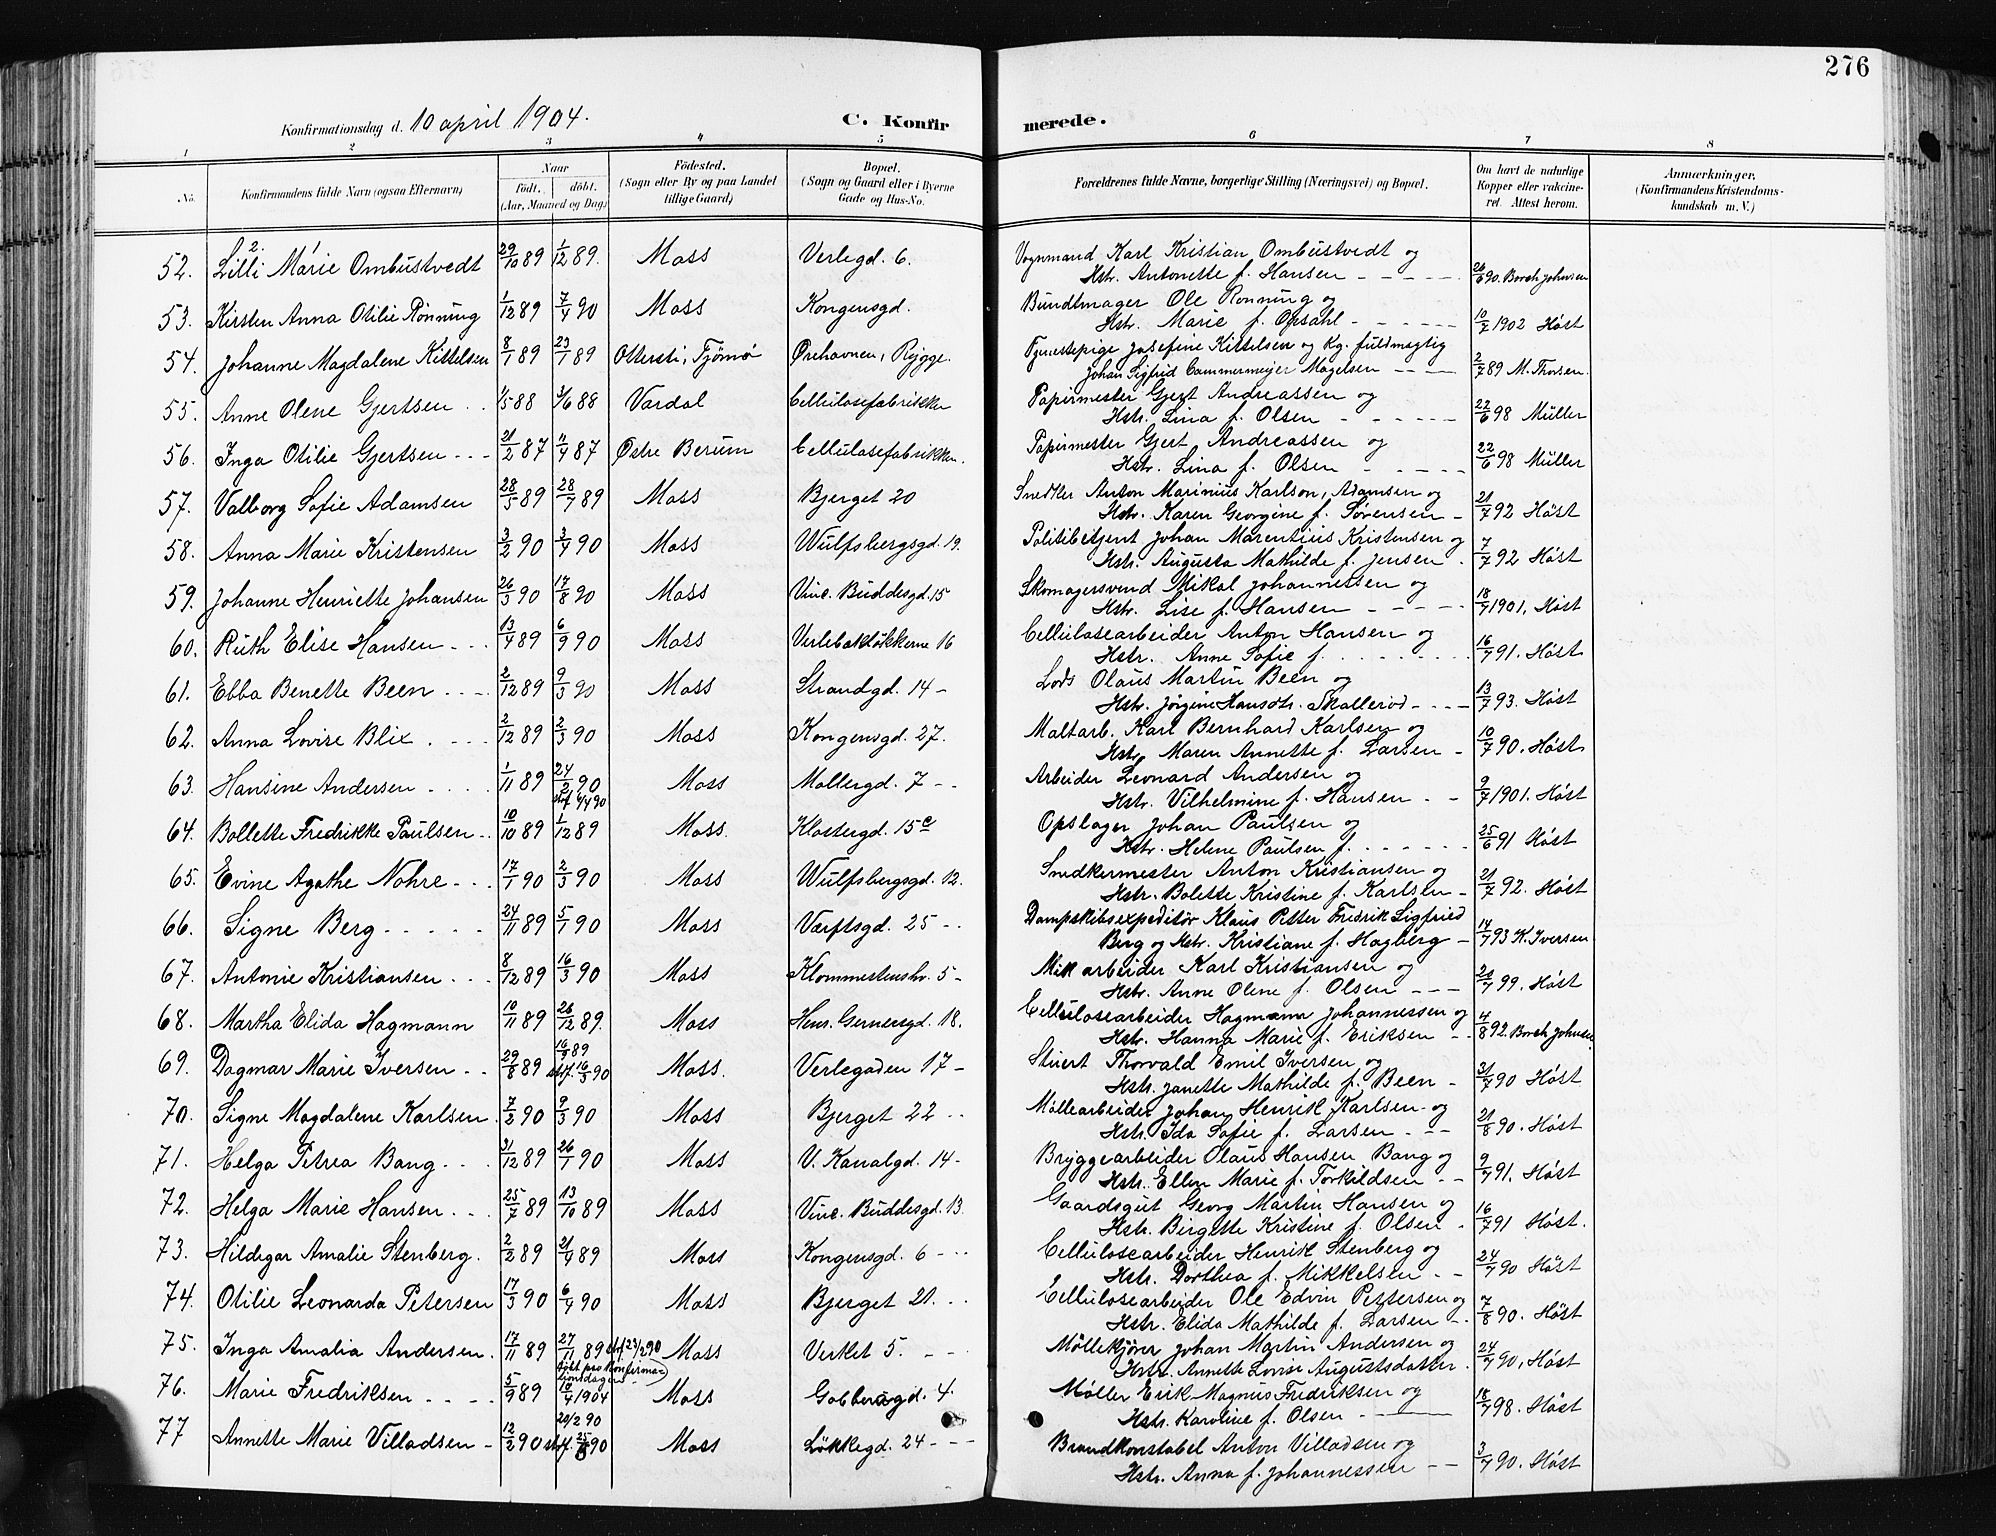 276
Konfirmationsdag d. 10 april 1904.
C. Konfir merede.
1 2 3 4 5 6 7 8
No. Konfirmandens fulde Navn (ogsaa Efternavn) Naar født. døbt. (Aar, Maaned og Dag) Fødested. (Sogn eller By og paa Landet tillige Gaard) Bopæl. (Sogn og Gaard eller i Byerne Gade og Hus-No. Forældrenes fulde Navne, borgerlige Stilling (Næringsvei) og Bopæl. Om havt de naturlige Kopper eller vakcineret. Attest herom. Anmærkninger. (Konfirmandens Kristendomskundskab m. V.)
52. Lilli Marie Ombustvedt 29/10 89 1/12 89. Moss Verlegd. 6. Vognmand Karl Kristian Ombustvedt og
Hstr. Antonette f. Hansen 26/6 90. Borch Johnsen
53. Kirsten Anna Otilie Rønning 1/12 89 7/4 90 Moss Kongensgd. Bundtmager Ole Rønning og
Hstr. Marie f. Opsahl 10/7 1902 Høst
54. Johanne Magdalene Kittelsen 8/1 89 23/1 89 Ottersti, Tjømø Ørehavnen, Rygge. Tjenestepige Josefine Kittelsen og Kg. fuldmægtig
Johan Sigfrid Cammermeyer Magelsen 2/7 89 M. Thorsen.
55. Anne Olene Gjertsen 1/5 88 3/6 88 Vardal Cellulosefabrikken Papirmester Gjert Andreassen og
Hstr. Lina f. Olsen 22/6 98 Müller
56. Inga Otilie Gjertsen 21/2 87 11/4 87 Østre Berum Cellulosefabrikken. Papirmester Gjert Andreassen og
Hstr. Lina f. Olsen 22/6 98 Müller
57. Valborg Sofie Adamsen 28/5 89 28/7 89 Moss Bjerget 20 Snedker Anton Marinius Karlson, Adamsen og
Hstr. Karen Georgine f. Sørensen 21/7 92 Høst
58. Anna Marie Kristensen 3/2 90 3/4 90 Moss Wulfsbergsgd. 19. Politibetjent Johan Marentius Kristensen og
Hstr. Augusta Mathilde f. Jensen 7/7 92 Høst
59. Johanne Henriette Johansen 26/3 90 17/8 90 Moss Vinc. Buddesgd. 15 Skomagersvend Mikal Johannessen og
Hstr. Lise f. Hansen 18/7 1901. Høst
60. Ruth Elise Hansen 13/4 89 6/9 90 Moss Verlebakløkkerne 16 Cellulosearbeider Anton Hansen og
Hstr. Anne Sofie f. 16/7 91. Høst
61. Ebba Benette Been 2/12 89 9/3 90 Moss Strandgd. 14 Lods Olaus Martin Been og
Hstr. Jørgine Hansdtr. Skallerød 13/7 93. Høst
62. Anna Lovise Blix 2/12 89 2/3 90 Moss Kongensgd. 27. Maltarb. Karl Bernhard Karlsen og
Hstr. Maren Annette f. Larsen 10/7 90. Høst
63. Hansine Andersen 1/11 89 24/2 90 stf. 4/4 90 Moss Møllergd. 7 Arbeider Leonard Andersen og
Hstr. Vilhelmine f. Hansen 9/7 1901. Høst
64. Bollette Fredrikke Paulsen 10/10 89 1/12 89 Moss. Klostergd. 15c Opslager Johan Paulsen og
Hstr. Helene Paulsen f. 25/6 91 Høst
65. Evine Agathe Nohre 17/1 90 2/3 90 Moss Wulfsbergsgd. 12. Snedkermester Anton Kristiansen og
Hstr. Bolette Kristine f. Karlsen 21/7 92. Høst
66. Signe Berg 24/11 89 5/1 90 Moss Værftsgd. 25 Dampskibsexpeditør Klaus Petter Fredrik Sigfried
Berg og Hstr. Kristiane f. Hagberg 14/7 93 K. Iversen
67. Antonie Kristiansen 8/12 89 16/3 90 Moss Klommestenshv. 5 Mik arbeider Karl Kristiansen og
Hstr. Anne Olene f. Olsen 20/7 99. Høst
68. Martha Elida Hagmann 10/11 89 26/12 89. Moss Henr. Gernersgd. 18. Cellulosearbeider Hagmann Johannessen og
Hstr. Hanna Marie f. Eriksen 4/8 92. Borch Johnsen
69. Dagmar Marie Iversen 29/8 89 16/9 89 stf. 16/3 90 Moss. Verlegaden 17 Stuert Thorvald Emil Iversen og
Hstr. Janette Mathilde f. Been 31/7 90 Høst
70. Signe Magdalene Karlsen 7/2 90 9/3 90 Moss Bjerget 22 Møllearbeider Johan Henrik Karlsen og
Hstr. Ida Sofie f. Larsen 21/8 90. Høst
71. Helga Petrea Bang 31/12 89 26/1 90 Moss V. Kanalgd. 14 Bryggearbeider Olaus Hansen Bang og
Hstr. Ellen Marie f. Torkildsen 9/7 91. Høst
72. Helga Marie Hansen 25/7 89 13/10 89 Moss Vinc. Buddesgd. 13. Gaardsgut Georg Martin Hansen og
Hstr. Birgitte Kristine f. Olsen 16/7 91 Høst.
73. Hildegar Amalie Stenberg. 2/2 89 21/4 89 Moss Kongensgd. 6 Cellulosearbeider Henrik Stenberg og
Hstr. Dorthea f. Mikkelsen 24/7 90 Høst
74. Otilie Leonarda Petersen 17/3 90 6/4 90 Moss Bjerget 21. Cellulosearbeider Ole Edvin Pettersen og
Hstr. Elida Mathilde f. Larsen 7/8 90. Høst
75. Inga Amalia Andersen. 17/11 89 27/11 89 stf. 23/2 90 Moss Verket 5. Møllekjører Johan Martin Andersen og
Hstr. Annette Lovise Augustsdatter 24/7 90, Høst
76. Marie Fredriksen 5/9 89 døbt pro Konfirmationsdagen 10/4 1904 Moss Gobbensgd. 4. Møller Erik Magnus Fredriksen og
Hstr. Karoline f. Olsen 18/7 98. Høst
77 Annette Marie Villadsen 12/2 90 20/2 90 stf. 25/5 90 Moss Løkkegd. 24 Brandkonstabel Anton Villadsen og
Hstr. Anna f. Johannessen 3/7 90. Høst